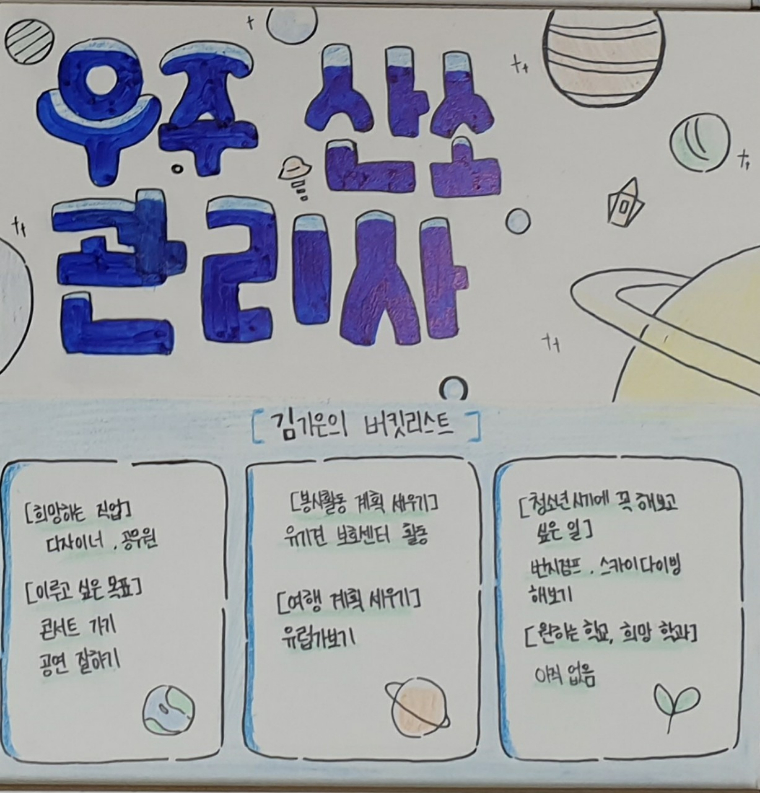 우주 산소
관리사
[김가운의 버킷리스트]
[희망하는 직업]
디자이너, 공무원
[이루고 싶은 목표]
콘서트 가기
공연 잘하기
[봉사활동 계획 세우기]
유기견 보호센터 활동
[여행 계획 세우기]
유럽가보기
[청소년시기에 꼭 해보고
싶은 일]
번지점프, 스카이다이빙
해보기
[원하는 학교, 희망 학과]
아직 없음